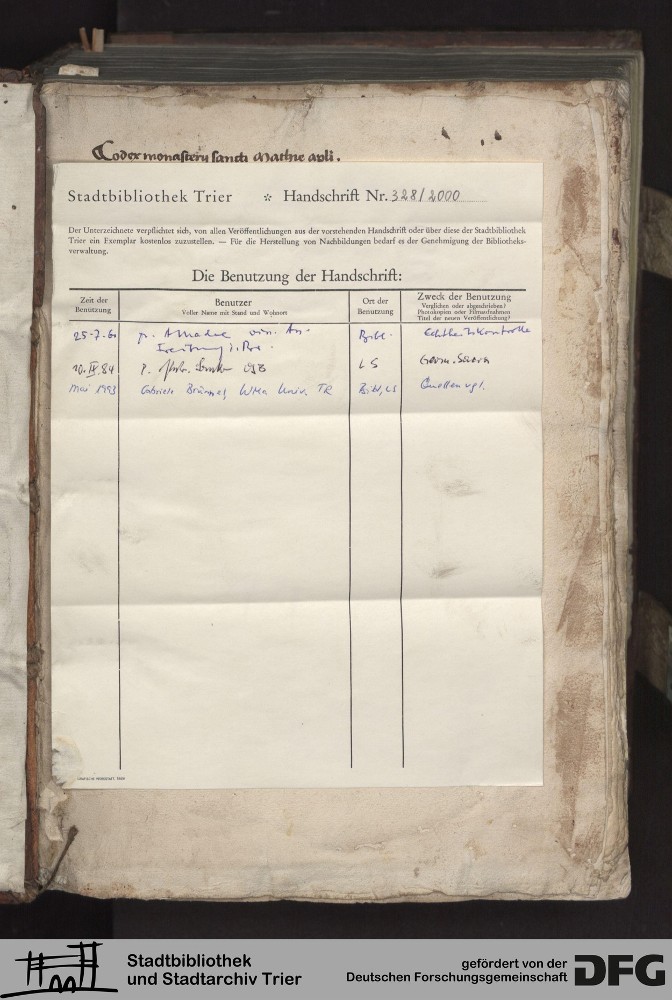 Codex monasterij sancti Mathie apli.
Stadtbibliothek Trier * Handschrift Nr. 328/2000
Der Unterzeichnete verpflichtet sich, von allen Veröffentlichungen aus der vorstehenden Handschrift oder über diese der Stadtbibliothek
Trier ein Exemplar kostenlos zuzustellen. — Für die Herstellung von Nachbildungen bedarf es der Genehmigung der Bibliotheks-
verwaltung.
Die Benutzung der Handschrift:
Zeit der
Benutzung
Benutzer
Voller Name mit Stand und Wohnort
Ort der
Benutzung
Zweck der Benutzung
Verglichen oder abgeschrieben?
Photokopien oder Filmaufnahmen
Titel der neuen Veröffentlichung?
25-7-60
Bibl.
10.IX.84 P. OSB LS Germ. Sacra
Mai 1993 Gabriele Univ. TR Bibl, LS Quellenvgl.
Stadtbibliothek
und Stadtarchiv Trier
gefördert von der
Deutschen Forschungsgemeinschaft
DFG